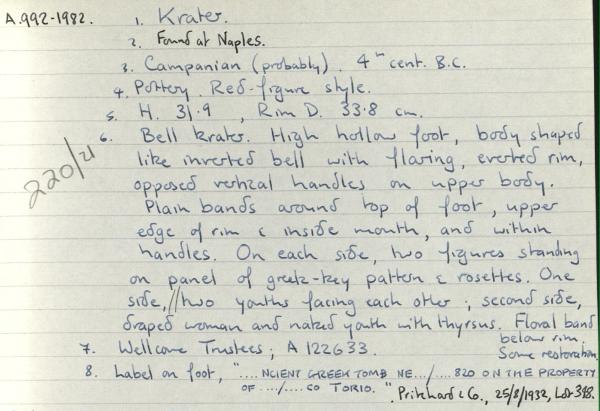 A.992-1982. 1. Krater.
2. Found at Naples.
3. Campanian (probably). 4th cent. B.C.
4. Pottery. Red-figure style.
5. H. 31.9, Rim D. 33.8 cm.
220/21
6. Bell krater. High hollow foot, body shaped
like inverted bell with flaring, everted rim,
opposed vertical handles on upper body.
Plain bands around top of foot, upper
edge of rim & inside mouth, and within
handles. On each side, two figures standing
on panel of greek-key pattern & rosettes. One
side, // two youths facing each other; second side,
draped woman and naked youth with thyrsus. Floral band
below rim.
Some restoration.
7. Wellcome Trustees; A 122633.
8. Label on foot, ".... NCIENT GREEK TOMB NE.../... 820 ON THE PROPERTY
OF ..../.... CO TORIO." Pritchard & Co., 25/8/1932, Lot 348.